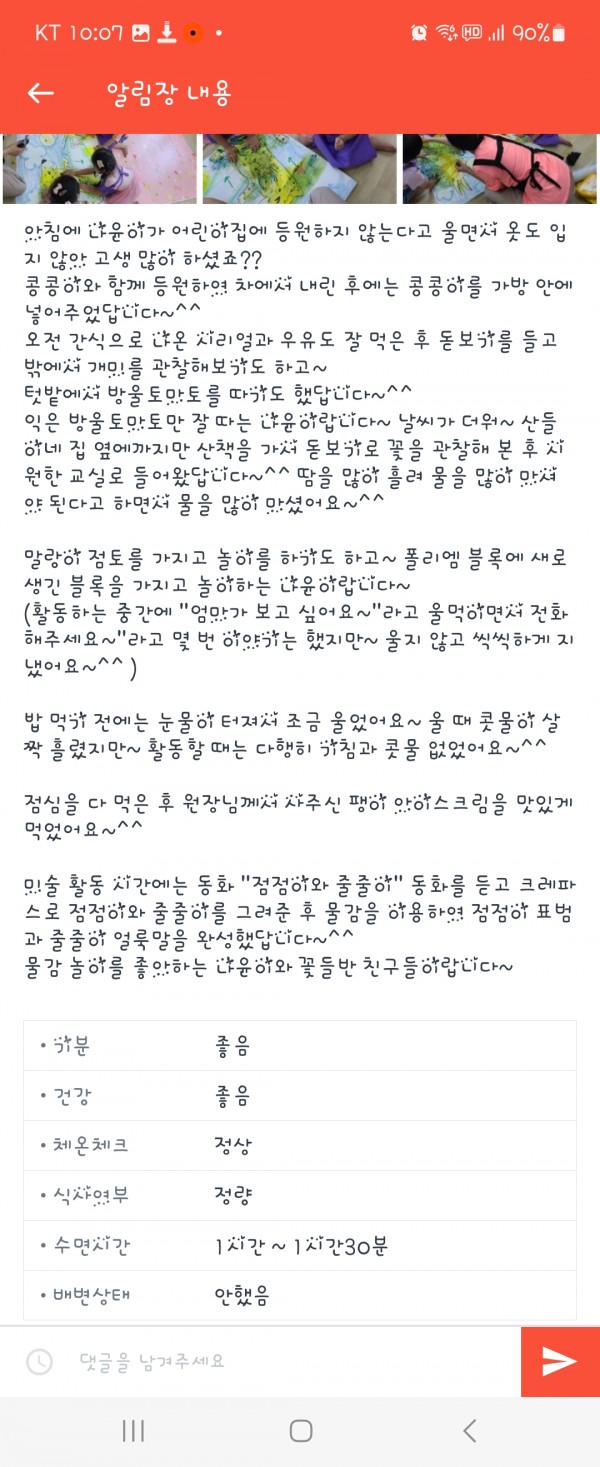 KT 10:07
HD 90%
알림장 내용
아침에 나윤이가 어린이집에 등원하지 않는다고 울면서 옷도 입
지 않아 고생 많이 하셨죠??
콩콩이와 함께 등원하여 차에서 내린 후에는 콩콩이를 가방 안에
넣어주었답니다~^^
오전 간식으로 나온 시리얼과 우유도 잘 먹은 후 돋보기를 들고
밖에서 개미를 관찰해보기도 하고~
텃밭에서 방울토마토를 따기도 했답니다~^^
익은 방울토마토만 잘 따는 나윤이랍니다~ 날씨가 더워~ 산들
이네 집 옆에까지만 산책을 가서 돋보기로 꽃을 관찰해 본 후 시
원한 교실로 들어왔답니다~^^ 땀을 많이 흘려 물을 많이 마셔
야 된다고 하면서 물을 많이 마셨어요~^^
말랑이 점토를 가지고 놀이를 하기도 하고~ 폴리엠 블록에 새로
생긴 블록을 가지고 놀이하는 나윤이랍니다~
(활동하는 중간에 "엄마가 보고 싶어요~"라고 울먹이면서 전화
해주세요~"라고 몇 번 이야기는 했지만~ 울지 않고 씩씩하게 지
냈어요~^^ )
밥 먹기 전에는 눈물이 터져서 조금 울었어요~ 울 때 콧물이 살
짝 흘렸지만~ 활동할 때는 다행히 기침과 콧물 없었어요~^^
점심을 다 먹은 후 원장님께서 사주신 팽이 아이스크림을 맛있게
먹었어요~^^
미술 활동 시간에는 동화 "점점이와 줄줄이" 동화를 듣고 크레파
스로 점점이와 줄줄이를 그려준 후 물감을 이용하여 점점이 표범
과 줄줄이 얼룩말을 완성했답니다~^^
물감 놀이를 좋아하는 나윤이와 꽃들반 친구들이랍니다~
• 기분 좋음
• 건강 좋음
• 체온체크 정상
• 식사여부 정량
• 수면시간 1시간 ~ 1시간30분
• 배변상태 안했음
댓글을 남겨주세요